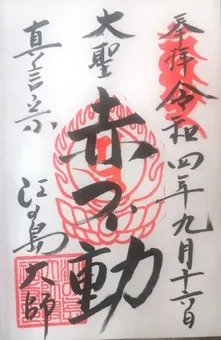 奉拝
令和四年九月十六日
大聖
赤不動
真言宗
江の島大師